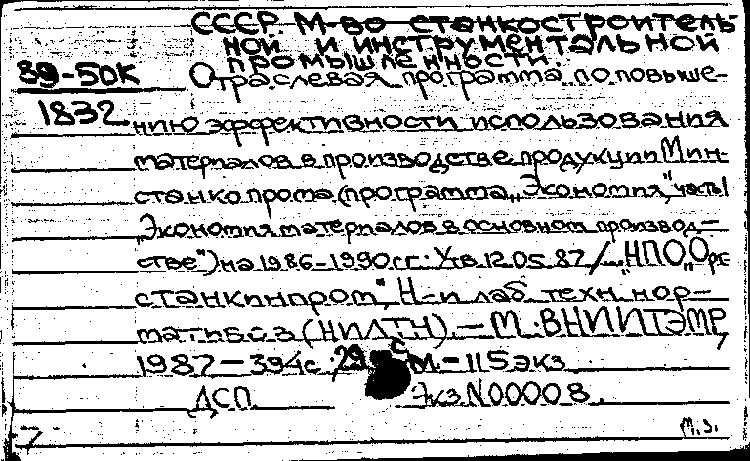 СССР. М-во станкостроитель-
ной и инструментальной
промышленности.
89-50К
Отраслевая программа по повыше-
1832
нию эффективности использования
материалов в производстве продукции Мин-
станкопрома (программа „Экономия", часть 1
„Экономия материалов в основном производ-
стве") на 1986-1990 гг. Утв. 12.05.87/ „НПО„Орг
станкинпром", Н-и лаб. техн. нор-
матив (НИЛТН). - М.: ВНИИТЭМР,
1987 - 394с.; 29 с М. - 115 экз
ДСП. Экз. N 00008.
М.З.